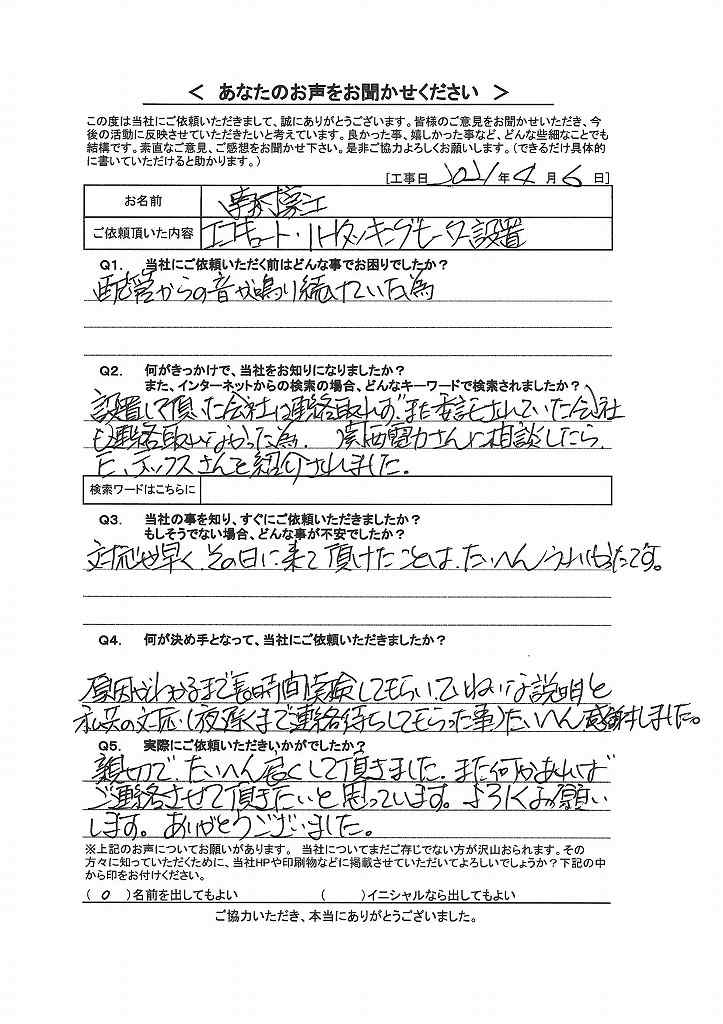 ＜ あなたのお声をお聞かせください ＞
この度は当社にご依頼いただきまして、誠にありがとうございます。皆様のご意見をお聞かせいただき、今
後の活動に反映させていただきたいと考えています。良かった事、嬉しかった事など、どんな些細なことでも
結構です。素直なご意見、ご感想をお聞かせ下さい。是非ご協力よろしくお願いします。(できるだけ具体的
に書いていただけると助かります。)
[工事日 2021年 4月 6日]
お名前
ご依頼頂いた内容 エコキュート・ 設置
Q1. 当社にご依頼いただく前はどんな事でお困りでしたか?
配管からの音が鳴り続けていた為
Q2. 何がきっかけで、当社をお知りになりましたか?
また、インターネットからの検索の場合、どんなキーワードで検索されましたか?
設置して頂いた会社は連絡取れず、また委託されていた会社
も連絡取れなかった為、関西電力さんに相談したら、
ヒ、テックスさんを紹介されました。
検索ワードはこちらに
Q3. 当社の事を知り、すぐにご依頼いただきましたか?
もしそうでない場合、どんな事が不安でしたか?
対応が早く、その日に来て頂けたことは、たいへんうれしかったです。
Q4. 何が決め手となって、当社にご依頼いただきましたか?
原因がわかるまで長時間実験してもらい、ていねいな説明と
私共の対応(夜遅くまで連絡待ちしてもらった事)たいへん感謝しました。
Q5. 実際にご依頼いただきいかがでしたか?
親切で、たいへん良くして頂きました。また何かあれば
ご連絡させて頂きたいと思っています。よろしくお願い
します。ありがとうございました。
※上記のお声についてお願いがあります。 当社についてまだご存じでない方が沢山おられます。その
方々に知っていただくために、当社HPや印刷物などに掲載させていただいてよろしいでしょうか?下記の中
から印をお付けください。
( o )名前を出してもよい ( )イニシャルなら出してもよい
ご協力いただき、本当にありがとうございました。